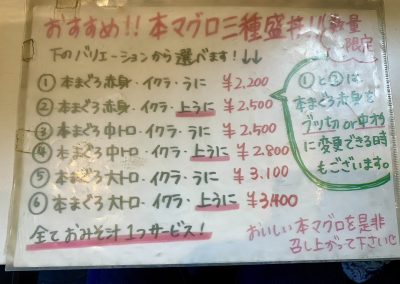 おすすめ!! 本マグロ三種盛丼!! 数量限定
下のバリエーションから選べます! ↓↓
① 本まぐろ赤身・イクラ・うに ¥2,200
② 本まぐろ赤身・イクラ・上うに ¥2,500
③ 本まぐろ中トロ・イクラ・うに ¥2,500
④ 本まぐろ中トロ・イクラ・上うに ¥2,800
⑤ 本まぐろ大トロ・イクラ・うに ¥3,100
⑥ 本まぐろ大トロ・イクラ・上うに ¥3,400
全ておみそ汁1つサービス!
①と②は
本まぐろ赤身を
ブツ切 or 中オチ
に変更できる時
もございます。
おいしい本マグロを是非
召し上がって下さい